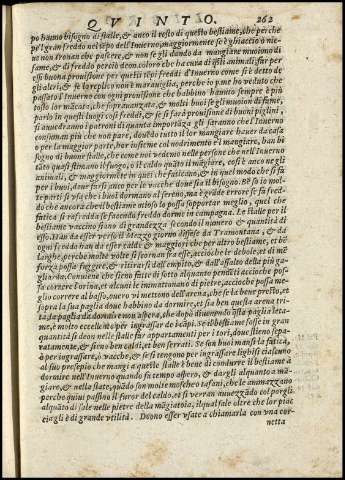 QVINTO. 262
po hanno bisogno di stalle, & anco il resto di questo bestiame, che per che
pe'l gran freddo nel tẽpo dell'Inuerno, maggiormente se è ghiaccio ò nie-
ue non trouan che pascere, & non se gli dando da mangiare muoiono di
fame, & di freddo perciò deon coloro che ha cura di q̃sti animali, far per
essi buona prouisione per questi tẽpi freddi d'Inuerno come si è detto de
gli altri, & se lo replico non è marauiglia, perche io n'ho veduto che
passato l'Inuerno con ogni prouisione che habbino hanno sempre è più
posto lor mãcata, che soprauanzata, & molti buoi se gli muoion di fame,
parlo in questi luoghi così freddi, & se si farà prouisione di buoni pigliui,
si auuederanno i patroni di quanta importãza gli saranno che l'Inuerno
consumon più che non pare, douẽdo tutto il lor mangiare hauer da casa
ò per la maggior parte, hor insieme col nodrimento e'l mangiare, han bi
sogno di buone stalle, che come noi vedemo nelle persone che nell'Inuerno
tãto quasi stimano il fuogo, o il caldo quãto il mãgiare, così è anco ne gli
animali, & maggiormente in quei che faticano, & in quel modo che si fa
per i buoi, deue farsi anco per le vacche doue fà il bisogno. Bẽ so io mol-
te parti si vsa che i buoi dormano al sereno, ma è grãde errore se fa fred-
do che ancora che'l bestiame otioso lo possa sopportar meglio, quel che
fatica si rafredda se facendo freddo dorme in campagna. Le stalle per il
bestiame vaccino siano di grandezza secondo il numero & quantità di
esso. Han da esser verso il Mezzo giorno difese da Tramontana, & da
ogni freddo han da esser calde & maggiori che per altro bestiame, et bẽ
larghe, perche molte volte si scornan fra esse, acciochè le debole, et di mẽ
forza possa fuggire, & ritirarsi dall'empito, & dall'assalto della più ga-
gliarda. Conuiene che sieno fatte di sotto alquanto pendẽti acciochè pos-
sa correre l'orina, et alcuni le immattonano di pietre, acciochè possa me-
glio correre al basso, ouero vi mettono dell'arena, che se la beue presto, et
sopra la sua paglia doue habbino da dormire, et sia ben questa arena tri-
ta, la paglia da dormire nõ sia aspera, che dopò diuenendo vna paglia leta-
me, è molto eccellente per ingrassar de i cãpi. Se il bestiame fosse in gran
quantità si deon nelle stalle far appartamenti per i tori, doue stieno sepa-
ratamente, & sieno ben caldi, et ben serrati. Se son buoi mansi la fatica,
ò per ingrassare, ò vacche, & se si tengono per ingrassare leghisi ciascuno
al suo presepio che mangi a queste stalle è bene di condurre il bestiame à
dormire nell'Inuerno quando fa tempo aspero, & dargli alquanto a mã-
giare, & nella state, quãdo son molte mosche o tafani, che le ammazzano
perche quiui passino il furor del caldo, et si verran auuezzãdo col porgli
alquãto di sale nelle pietre della mãgiatoia, il qual sale oltre che lor piac
ciagli è di grande vtilità. Deono esser vsate a chiamarla con vna cor-
netta